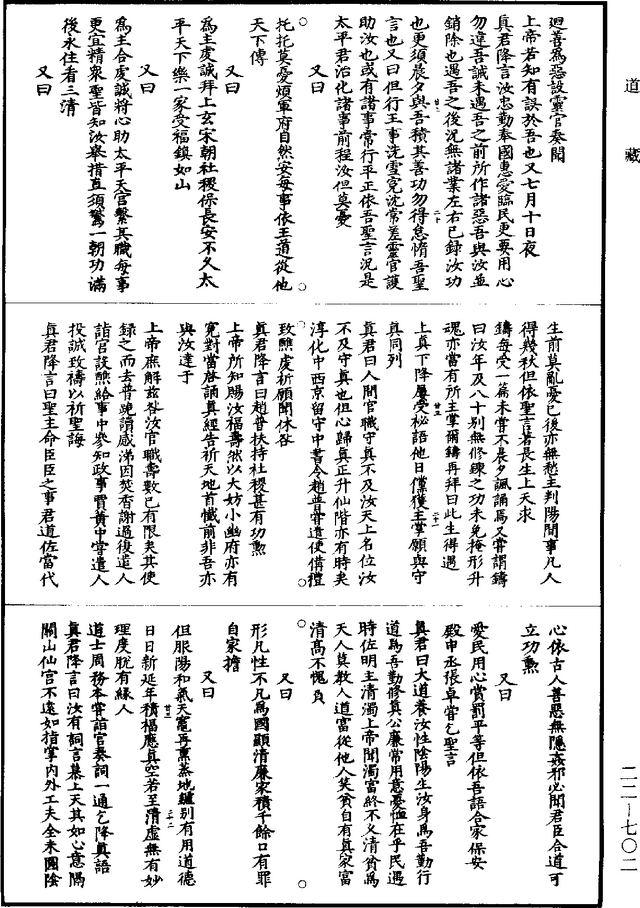 道藏
迴善為惡設靈官奏聞
上帝若知有誤於吾也又七月十日夜
真君降言汝忠勤奉國惠愛臨民更要用心
勿違吾誠未遇吾之前所作諸惡吾與汝並
銷除也遇吾之後況無諸業左右已錄汝功
也更須晨夕與吾積其善功勿得怠惰吾聖
言也又曰但行王事洗雪冤沈常差靈官護
助汝也或有諸事常行平正依吾聖言況是
太平君治化諸事前程汝但莫憂
又曰
托托莫憂煩軍府自然安每事依王道從他
天下傳
又曰
為主虔誠拜上玄宋朝社稷保長安不久太
平天下樂一家受福鎮如山
又曰
為主合虔誠將心助太平天官繫其職每事
更宜精眾聖皆知汝舉措直須驚一朝功滿
後永住看三清
又曰
生前莫亂憂已後亦無愁主判陽間事凡人
得幾秋但依聖言著長生上天求
鑄每受一篇未嘗不晨夕諷誦焉又嘗謂鑄
曰汝年及八十別無修鍊之功未免掩形升
魂亦當有所主掌爾鑄再拜曰此生得遇
上真下降屢受祕語他日儻獲主掌願與守
真同列
真君曰人間官職守真不及汝天上名位汝
不及守真也但心歸真正升仙階亦有時矣
淳化中西京留守中書令趙普嘗遣使備禮
致醮虔祈願聞休咎
真君降言曰趙普扶持社稷甚有功勳
上帝所知賜汝福壽然以大妨小幽府亦有
冤對當啓誦真經告祈天地首懺前非吾亦
與汝達于
上帝庶解茲咎汝官職壽數已有限矣其使
錄之而去普跪讀感涕因焚香謝過後遣人
詣官設醮給事中參知政事賈黃中嘗遣人
投誠致禱以祈聖誨
真君降言曰聖主命臣臣之事君道佐當代
心依古人善惡無隱姦邪必聞君臣合道可
立功勳
又曰
愛民用心賞罰平等但依吾語合家保安
殿中丞張卓嘗乞聖言
真君曰大道養汝性陰陽生汝身為吾勤行
道為吾勤修真公廉常用意憂恤在乎民遇
時佐明主清濁上帝聞濁富終不久清貧為
天人莫教人道富從他人笑貧自有真家富
清高不愧負
又曰
形凡性不凡為國顯清廉家積千餘口有罪
自家擔
又曰
但服陽和氣天竈再熏蒸地鑪別有用道德
日日新延年積福應真空若至清虛無有妙
理度脫有緣人
道士周務本嘗詣官奏詞一通乞降真語
真君降言曰汝有詞言慕上天其如心意隔
關山仙官不遠如指掌內外工夫全未圓陰
二二—七〇二